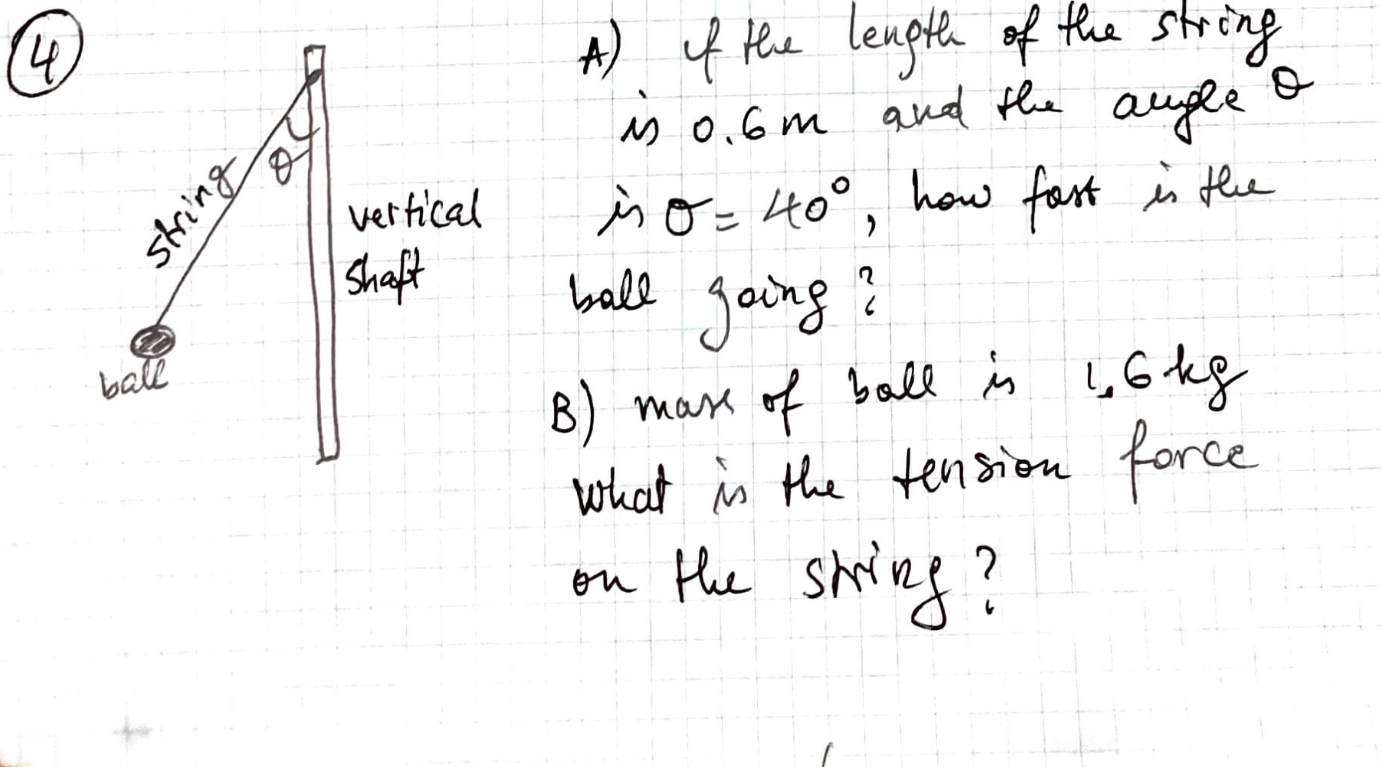 4
A) if the length of the string
is 0.6m and the angle θ
is θ = 40°, how fast is the
ball going?
B) mass of ball is 1,6 kg
What is the tension force
on the string?
string
θ
vertical
shaft
ball